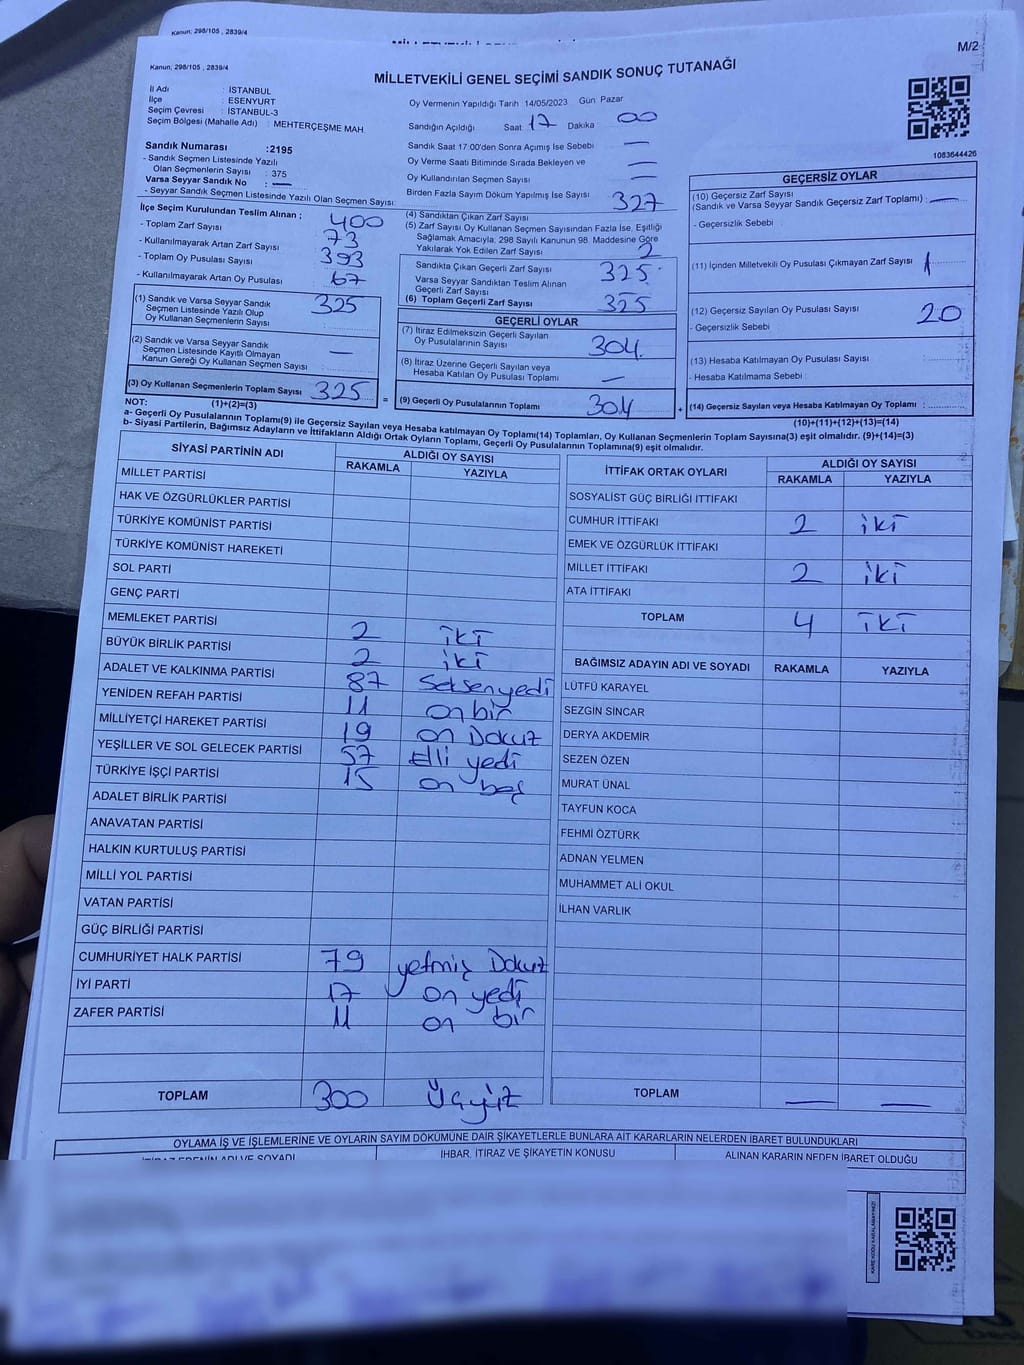 Kanun: 298/105 , 2839/4
M/2
Kanun: 298/105 , 2839/4
MİLLETVEKİLİ GENEL SEÇİMİ SANDIK SONUÇ TUTANAĞI
İl Adı : İSTANBUL
İlçe : ESENYURT
Seçim Çevresi : İSTANBUL-3
Seçim Bölgesi (Mahalle Adı) : MEHTERÇEŞME MAH.
Sandık Numarası :2195
- Sandık Seçmen Listesinde Yazılı
Olan Seçmenlerin Sayısı : 375
Varsa Seyyar Sandık No : —
- Seyyar Sandık Seçmen Listesinde Yazılı Olan Seçmen Sayısı:
Oy Vermenin Yapıldığı Tarih 14/05/2023 Gün Pazar
Sandığın Açıldığı Saat 17 Dakika 00
Sandık Saat 17:00'den Sonra Açımış İse Sebebi —
Oy Verme Saati Bitiminde Sırada Bekleyen ve —
Oy Kullandırılan Seçmen Sayısı —
Birden Fazla Sayım Döküm Yapılmış İse Sayısı
1083644426
İlçe Seçim Kurulundan Teslim Alınan ;
- Toplam Zarf Sayısı : 400
- Kullanılmayarak Artan Zarf Sayısı : 73
- Toplam Oy Pusulası Sayısı : 393
- Kullanılmayarak Artan Oy Pusulası : 67
(1) Sandık ve Varsa Seyyar Sandık
Seçmen Listesinde Yazılı Olup
Oy Kullanan Seçmenlerin Sayısı : 325
(2) Sandık ve Varsa Seyyar Sandık
Seçmen Listesinde Kayıtlı Olmayan
Kanun Gereği Oy Kullanan Seçmen Sayısı : —
(3) Oy Kullanan Seçmenlerin Toplam Sayısı : 325
(1)+(2)=(3)
(4) Sandıktan Çıkan Zarf Sayısı 327
(5) Zarf Sayısı Oy Kullanan Seçmen Sayısından Fazla İse, Eşitliği
Sağlamak Amacıyla, 298 Sayılı Kanunun 98. Maddesine Göre
Yakılarak Yok Edilen Zarf Sayısı 2
Sandıkta Çıkan Geçerli Zarf Sayısı 325
Varsa Seyyar Sandıktan Teslim Alınan
Geçerli Zarf Sayısı
(6) Toplam Geçerli Zarf Sayısı 325
GEÇERLİ OYLAR
(7) İtiraz Edilmeksizin Geçerli Sayılan
Oy Pusulalarının Sayısı : 304
(8) İtiraz Üzerine Geçerli Sayılan veya
Hesaba Katılan Oy Pusulası Toplamı : —
= (9) Geçerli Oy Pusulalarının Toplamı : 304 +
GEÇERSİZ OYLAR
(10) Geçersiz Zarf Sayısı
(Sandık ve Varsa Seyyar Sandık Geçersiz Zarf Toplamı) : —
- Geçersizlik Sebebi :
(11) İçinden Milletvekili Oy Pusulası Çıkmayan Zarf Sayısı : 1
(12) Geçersiz Sayılan Oy Pusulası Sayısı : 20
- Geçersizlik Sebebi :
(13) Hesaba Katılmayan Oy Pusulası Sayısı :
- Hesaba Katılmama Sebebi :
(14) Geçersiz Sayılan veya Hesaba Katılmayan Oy Toplamı :
(10)+(11)+(12)+(13)=(14)
NOT:
a- Geçerli Oy Pusulalarının Toplamı(9) ile Geçersiz Sayılan veya Hesaba Katılmayan Oy Toplamı(14) Toplamları, Oy Kullanan Seçmenlerin Toplam Sayısına(3) eşit olmalıdır. (9)+(14)=(3)
b- Siyasi Partilerin, Bağımsız Adayların ve İttifakların Aldığı Ortak Oyların Toplamı, Geçerli Oy Pusulalarının Toplamına(9) eşit olmalıdır.
SİYASİ PARTİNİN ADI ALDIĞI OY SAYISI
RAKAMLA YAZIYLA
MİLLET PARTİSİ
HAK VE ÖZGÜRLÜKLER PARTİSİ
TÜRKİYE KOMÜNİST PARTİSİ
TÜRKİYE KOMÜNİST HAREKETİ
SOL PARTİ
GENÇ PARTİ
MEMLEKET PARTİSİ 2 iki
BÜYÜK BİRLİK PARTİSİ 2 iki
ADALET VE KALKINMA PARTİSİ 87 Seksenyedi
YENİDEN REFAH PARTİSİ 11 on bir
MİLLİYETÇİ HAREKET PARTİSİ 19 on Dokuz
YEŞİLLER VE SOL GELECEK PARTİSİ 57 Elli yedi
TÜRKİYE İŞÇİ PARTİSİ 15 on beş
ADALET BİRLİK PARTİSİ
ANAVATAN PARTİSİ
HALKIN KURTULUŞ PARTİSİ
MİLLİ YOL PARTİSİ
VATAN PARTİSİ
GÜÇ BİRLİĞİ PARTİSİ
CUMHURİYET HALK PARTİSİ 79 yetmiş Dokuz
İYİ PARTİ 17 on yedi
ZAFER PARTİSİ 11 on bir
TOPLAM 300 Üçyüz
İTTİFAK ORTAK OYLARI ALDIĞI OY SAYISI
RAKAMLA YAZIYLA
SOSYALİST GÜÇ BİRLİĞİ İTTİFAKI
CUMHUR İTTİFAKI 2 iki
EMEK VE ÖZGÜRLÜK İTTİFAKI
MİLLET İTTİFAKI 2 iki
ATA İTTİFAKI
TOPLAM 4 iki
BAĞIMSIZ ADAYIN ADI VE SOYADI RAKAMLA YAZIYLA
LÜTFÜ KARAYEL
SEZGİN SİNCAR
DERYA AKDEMİR
SEZEN ÖZEN
MURAT ÜNAL
TAYFUN KOCA
FEHMİ ÖZTÜRK
ADNAN YELMEN
MUHAMMET ALİ OKUL
İLHAN VARLIK
TOPLAM — —
OYLAMA İŞ VE İŞLEMLERİNE VE OYLARIN SAYIM DÖKÜMÜNE DAİR ŞİKAYETLERLE BUNLARA AİT KARARLARIN NELERDEN İBARET BULUNDUKLARI
İTİRAZ EDENİN ADI VE SOYADI İHBAR, İTİRAZ VE ŞİKAYETİN KONUSU ALINAN KARARIN NEDEN İBARET OLDUĞU
KARE KODU KARALAMAYINIZ!